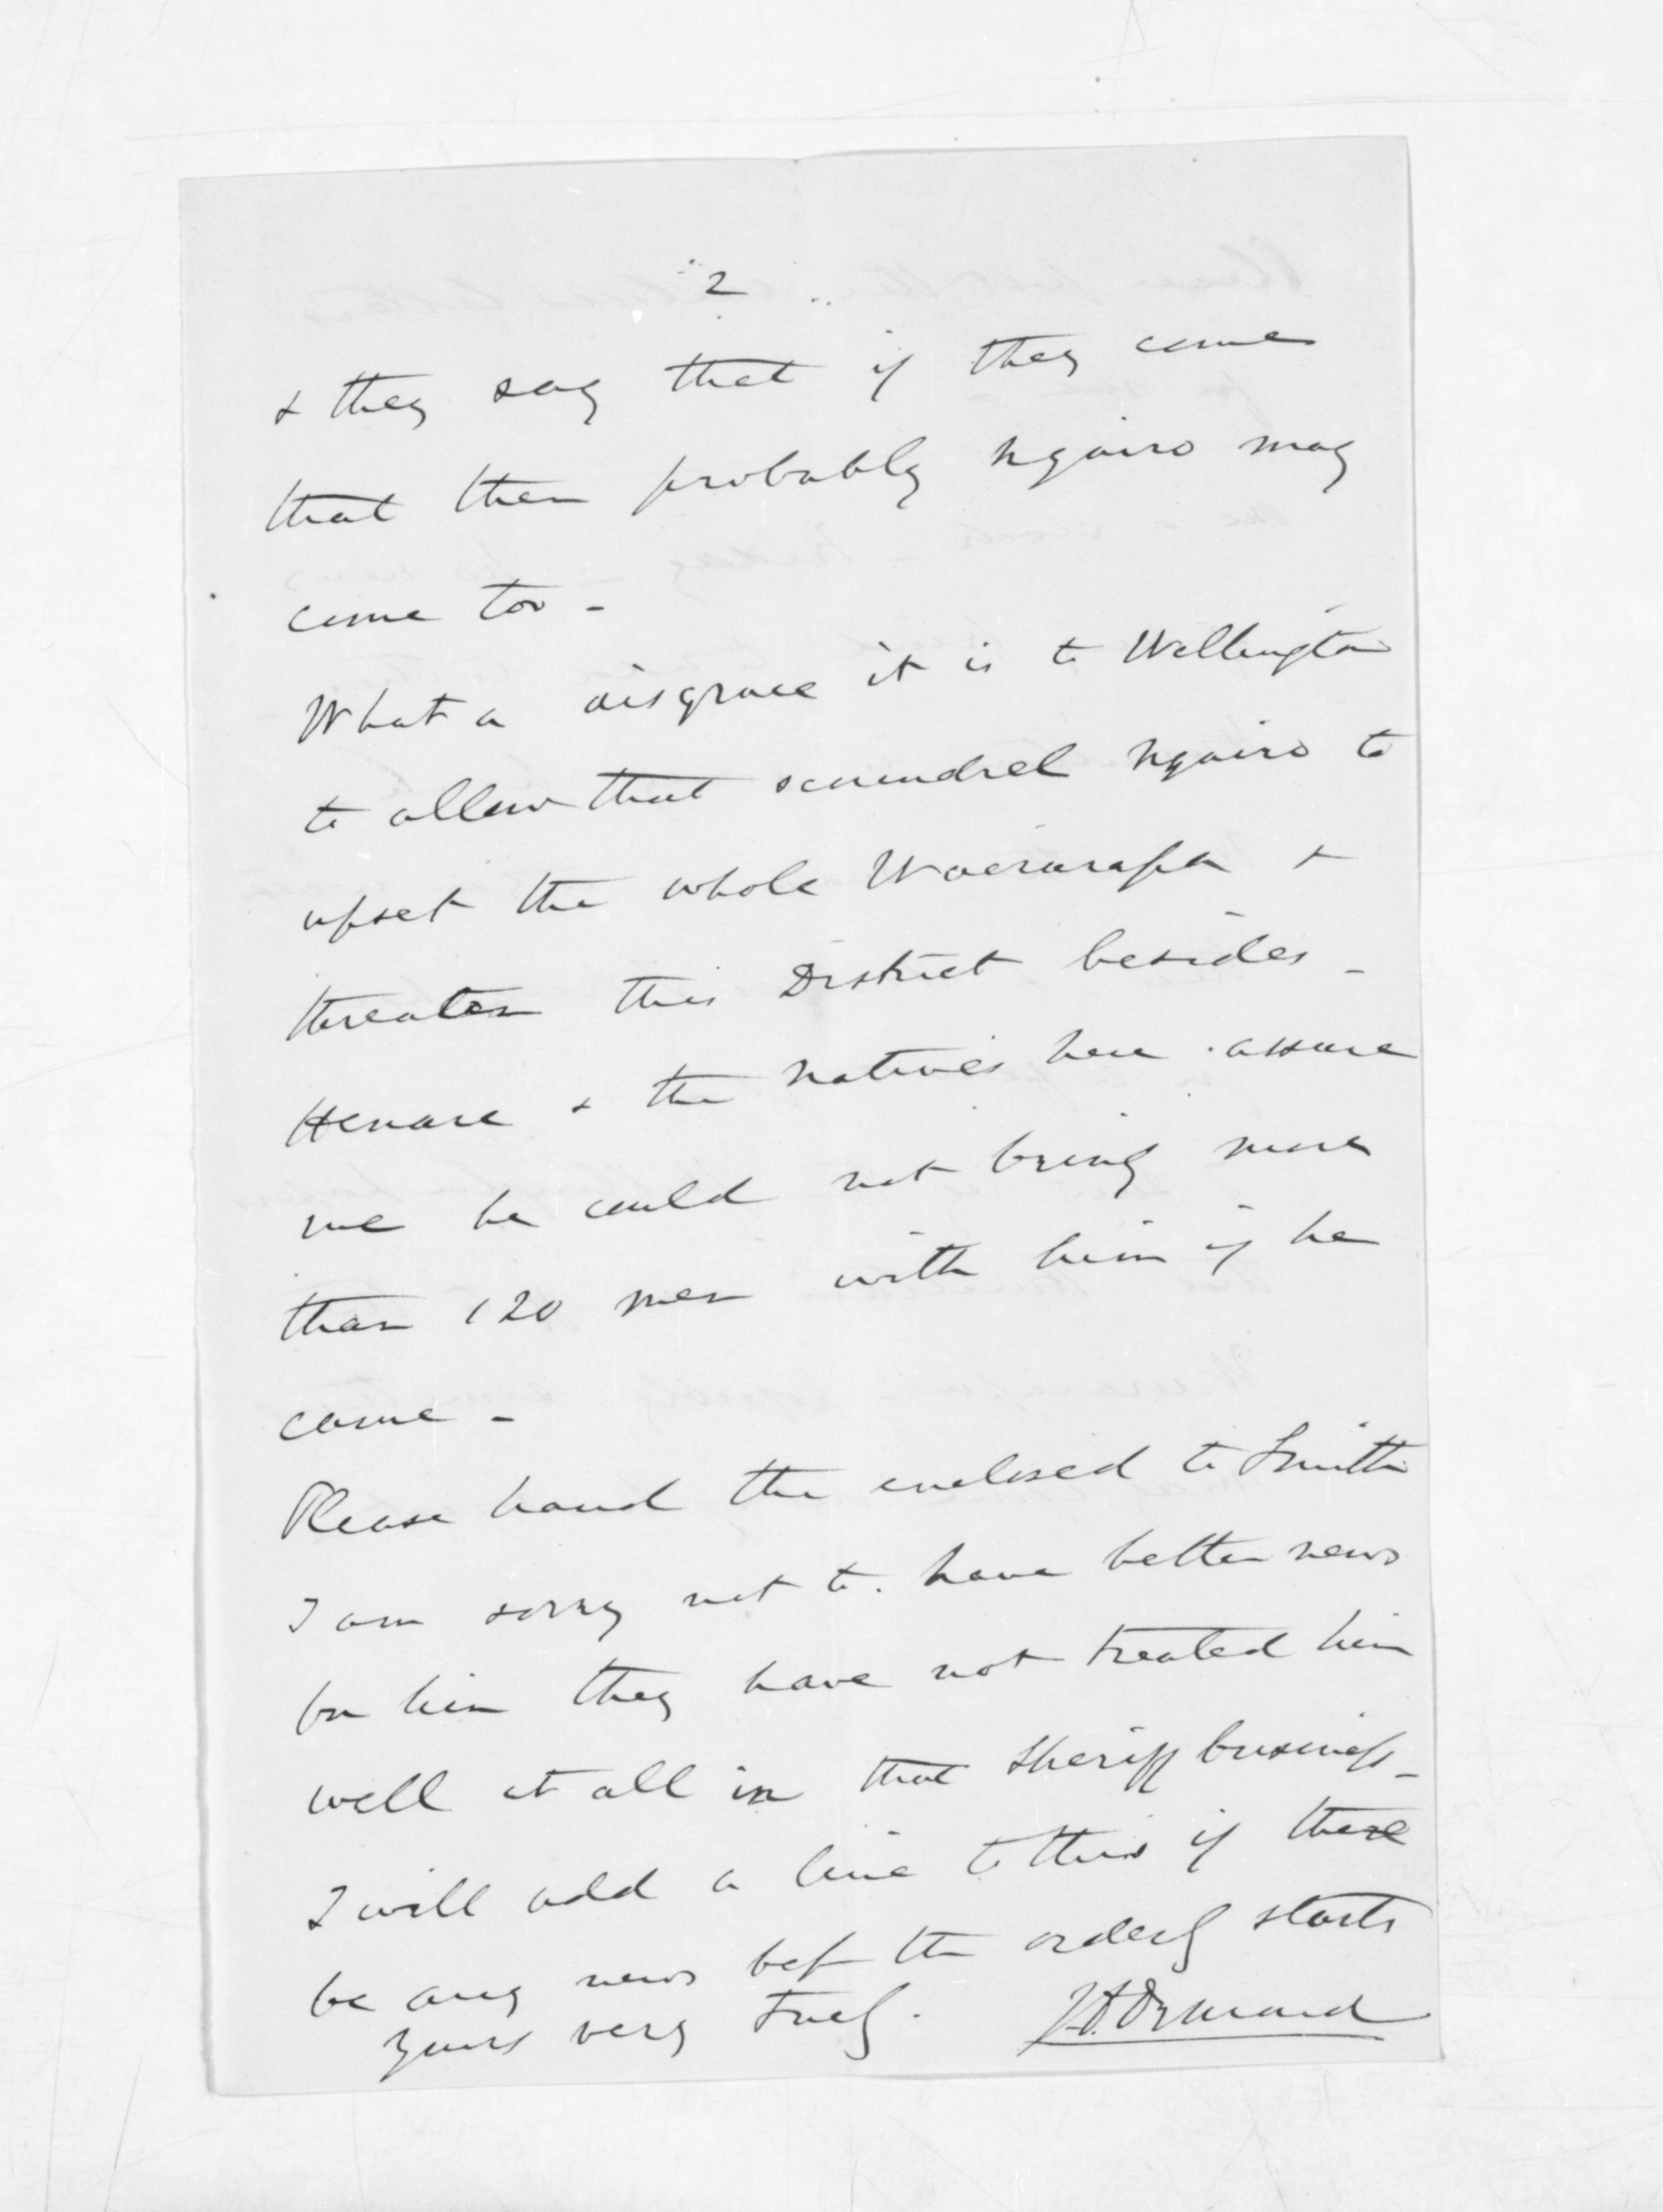 2
& they say that if they come
that then probably Ngairo may
come too -
What a disgrace it is to Wellington
to allow that scoundrel Ngairo to
upset the whole Waerarapa &
threaten this District besides -
Henare & the Natives here assure
me he could not bring more
than 120 men with him if he
came -
Please hand the enclosed to Smith
I am sorry not to have better news
for him they have not treated him
well at all in that Sheriff business -
I will add a line to this if there
be any news bef the orderly starts
yours very truly.
J.D. Ormond